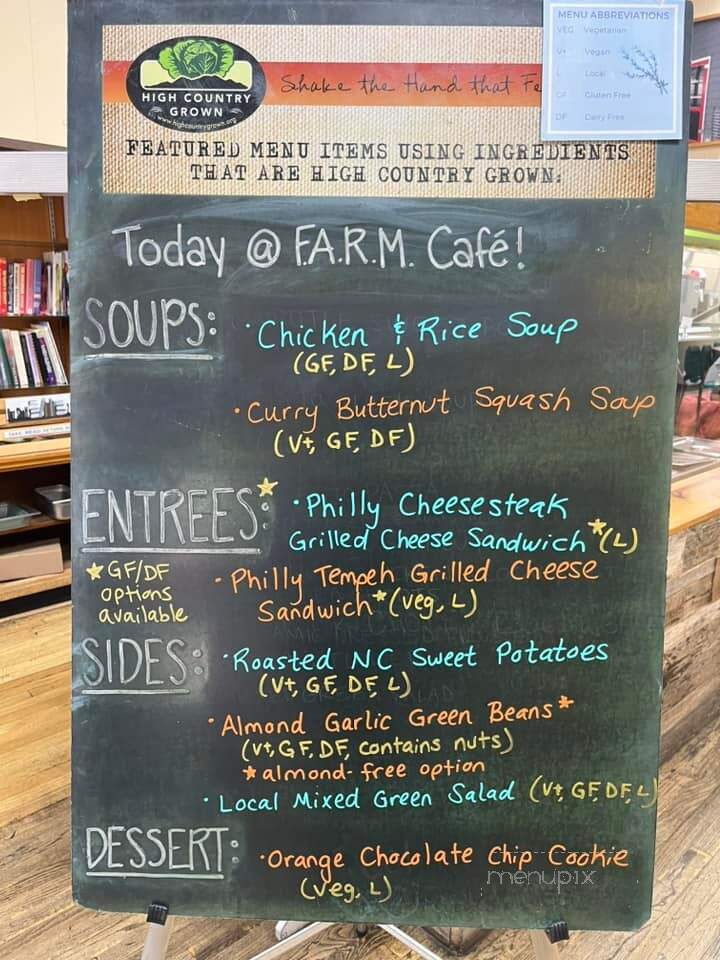 MENU ABBREVIATIONS
VEG Vegetarian
V+ Vegan
L Local
GF Gluten Free
DF Dairy Free
HIGH COUNTRY
GROWN
www.highcountrygrown.org
Shake the Hand that Fe
FEATURED MENU ITEMS USING INGREDIENTS
THAT ARE HIGH COUNTRY GROWN:
Today @ F.A.R.M. Café!
SOUPS:
· Chicken & Rice Soup
(GF, DF, L)
· Curry Butternut Squash Soup
(V+, GF, DF)
ENTREES:*
· Philly Cheesesteak
Grilled Cheese Sandwich* (L)
* GF/DF
options
available
· Philly Tempeh Grilled Cheese
Sandwich* (Veg, L)
SIDES:
· Roasted NC Sweet Potatoes
(V+, GF, DF, L)
· Almond Garlic Green Beans*
(V+, GF, DF, contains nuts)
* almond-free option
· Local Mixed Green Salad (V+, GF, DF, L)
DESSERT:
· Orange Chocolate Chip Cookie
(Veg, L)
menupix